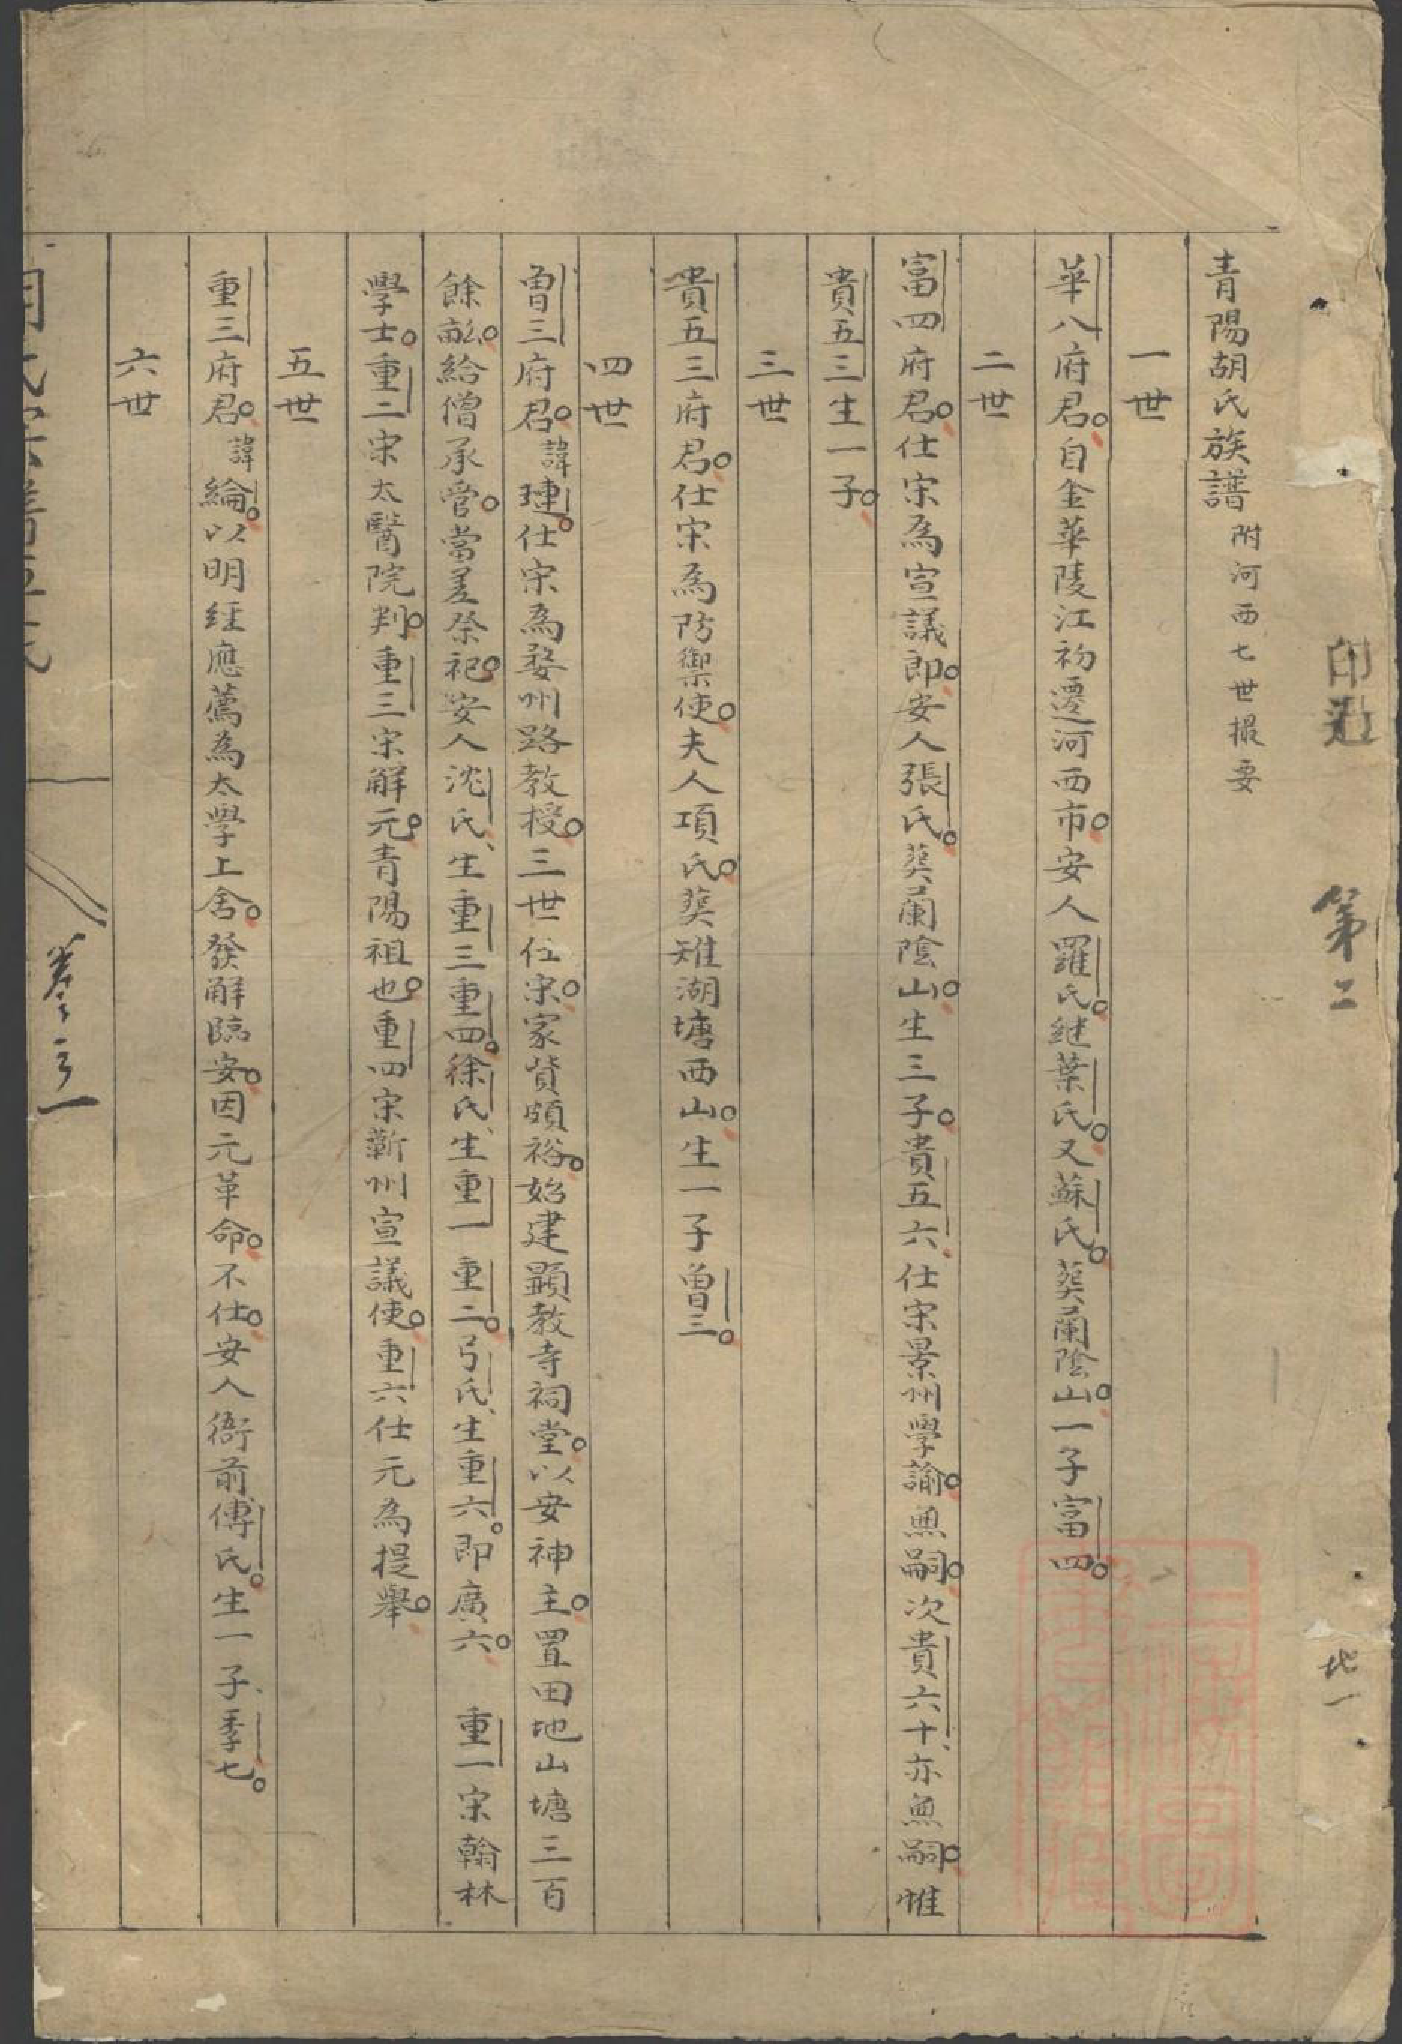 第二
地一
青陽胡氏族譜附河西七世撮要
一世
華八府君。自金華陵江初遷河西市。安人羅氏。継葉氏。又蘇氏。葬蘭陰山。一子富四。
二世
富四府君。仕宋為宣議郎。安人張氏。葬蘭陰山。生三子。貴五六、仕宋景州學諭。無嗣。次貴六十、亦無嗣。惟
貴五三生一子。
三世
貴五三府君。仕宋為防禦使。夫人項氏。葬雉湖塘西山。生一子曽三。
四世
曽三府君。諱璉。仕宋為婺州路教授。三世仕宋。家貲頗裕。始建顕教寺祠堂。以安神主。置田地山塘三百
餘畝。給僧承管。當差祭祀。安人沈氏、生重三重四。徐氏、生重一重二。弓氏、生重六。即廣六。 重一宋翰林
學士。重二宋太醫院判。重三宋解元。青陽祖也。重四宋蘄州宣議使。重六仕元為提舉。
五世
重三府君。諱綸。以明經應薦為太學上舍。發解臨安。因元革命。不仕。安人衙前傅氏。生一子、季七。
六世
卷之一